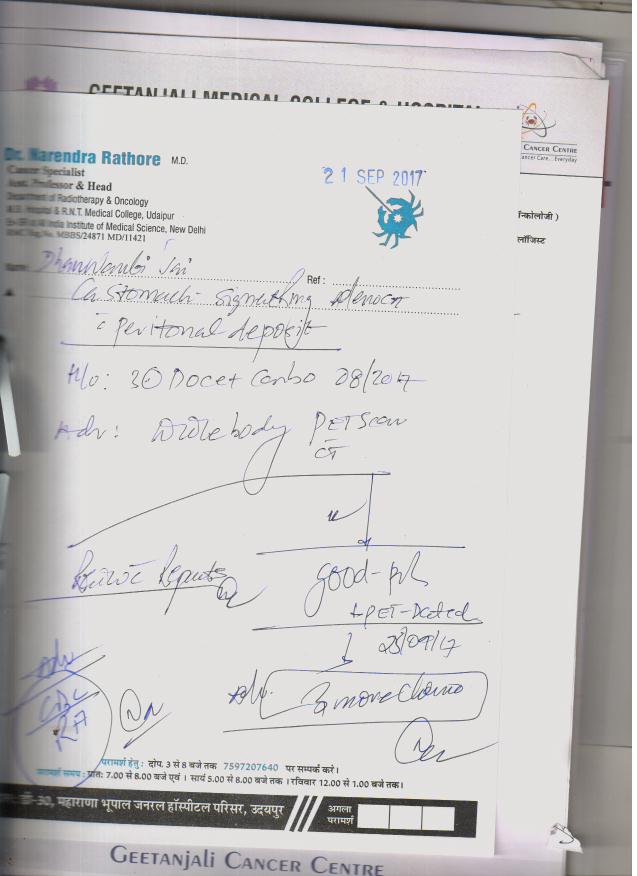 GEETANJALI MEDICAL COLLEGE & HOSPITAL
CANCER CENTRE
Cancer Care... Everyday
Dr. Narendra Rathore M.D.
Cancer Specialist
Asst. Professor & Head
Department of Radiotherapy & Oncology
M.B. Hospital & R.N.T. Medical College, Udaipur
Ex-SR at All India Institute of Medical Science, New Delhi
RMC Reg. No. MBBS/24871 MD/11421
21 SEP 2017
न्कोलोजी )
लॉजिस्ट
Name Jai
Ref :
Ca Stomach
c peritonal deposit
H/o: 3 Docet Carbo 08/2017
Adv: Whole body PET Scan
CT
Reports
good
PET-Dated
28/09/17
Adv. 3 more Chemo
Adv
CBC
परामर्श हेतु : दोप. 3 से 8 बजे तक 7597207640 पर सम्पर्क करें।
परामर्श समय : प्रातः 7.00 से 8.00 बजे एवं । सायं 5.00 से 8.00 बजे तक । रविवार 12.00 से 1.00 बजे तक।
डी-30, महाराणा भूपाल जनरल हॉस्पीटल परिसर, उदयपुर
अगला
परामर्श
GEETANJALI CANCER CENTRE